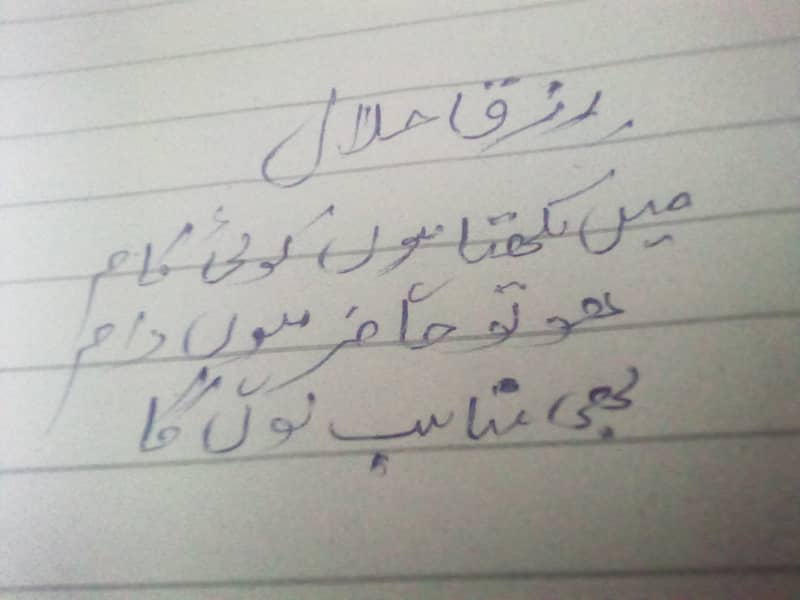 رزق حلال
میں لکھتا ہوں کوئی کام
ھو تو حاضر ہوں دام
بھی مناسب لوں گا